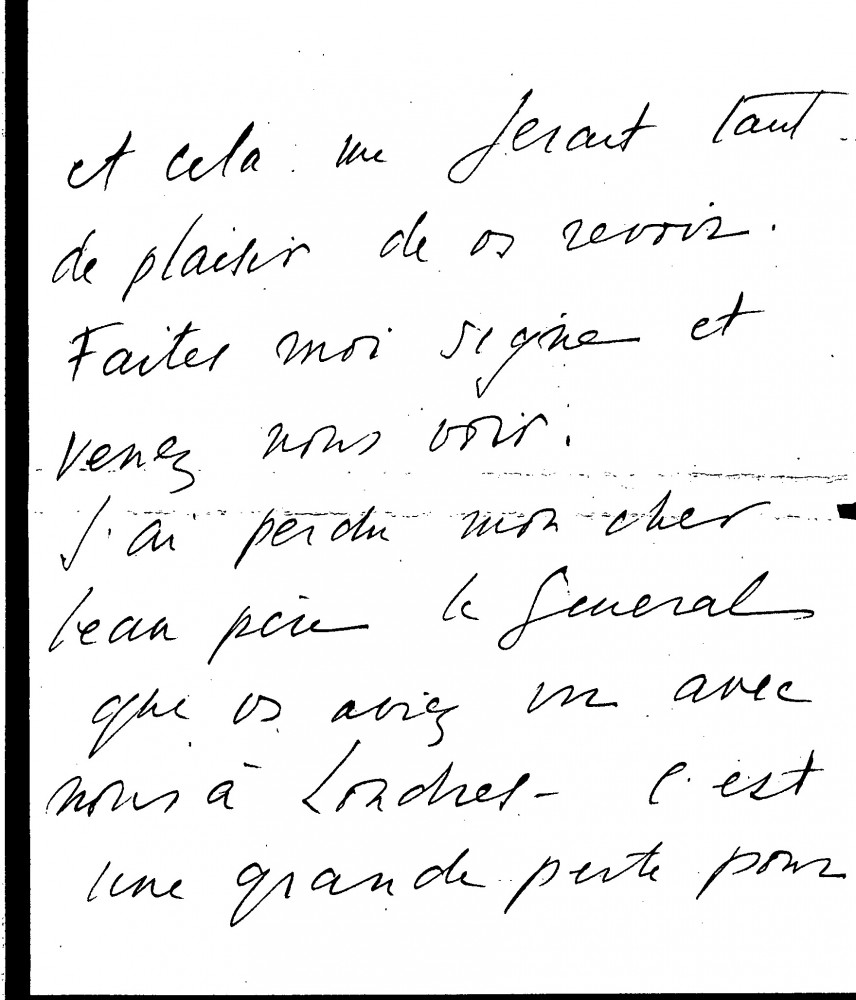 et cela me ferait tant
de plaisir de vs revoir.
Faites moi signe et
venez nous voir.
J'ai perdu mon cher
beau père le General
que vs aviez vu avec
nous à Londres - C'est
une grande perte pour